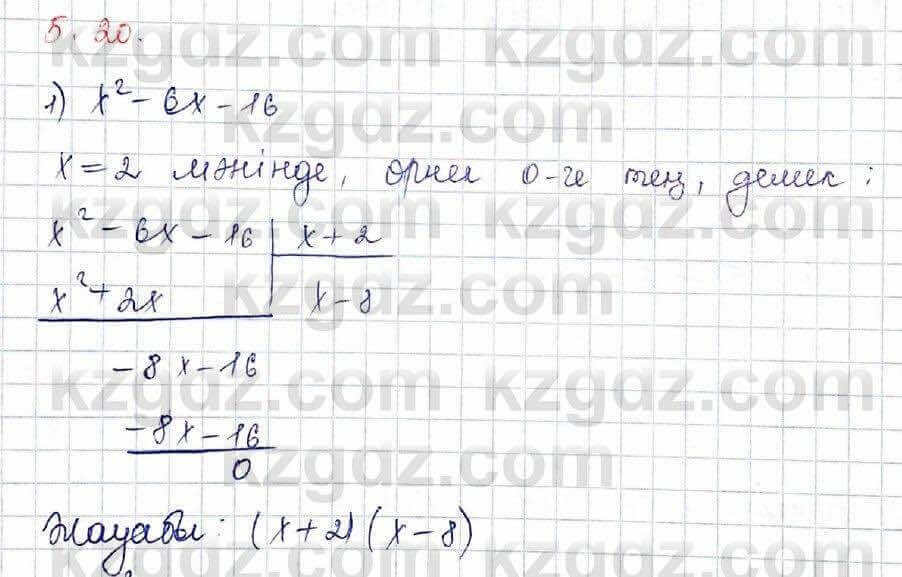 5.20.
1) x² - 6x - 16
x = 2 мәнінде, өрнек 0-ге тең, демек:
x² - 6x - 16 | x + 2
x² + 2x | x - 8
-8x - 16
-8x - 16
0
Жауабы: (x+2)(x-8)
kzgdz.com kzgdz.com
kzgdz.com
kzgdz.com kzgdz.com
kzgdz.com
kzgdz.com kzgdz.com
kzgdz.com